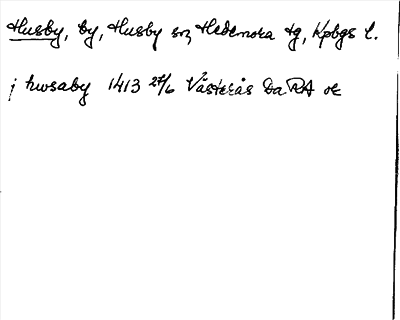 Husby, by, Husby sn, Hedemora tg, Kpbgs l.
j hwsaby 1413 27/6 Västerås Da RA or